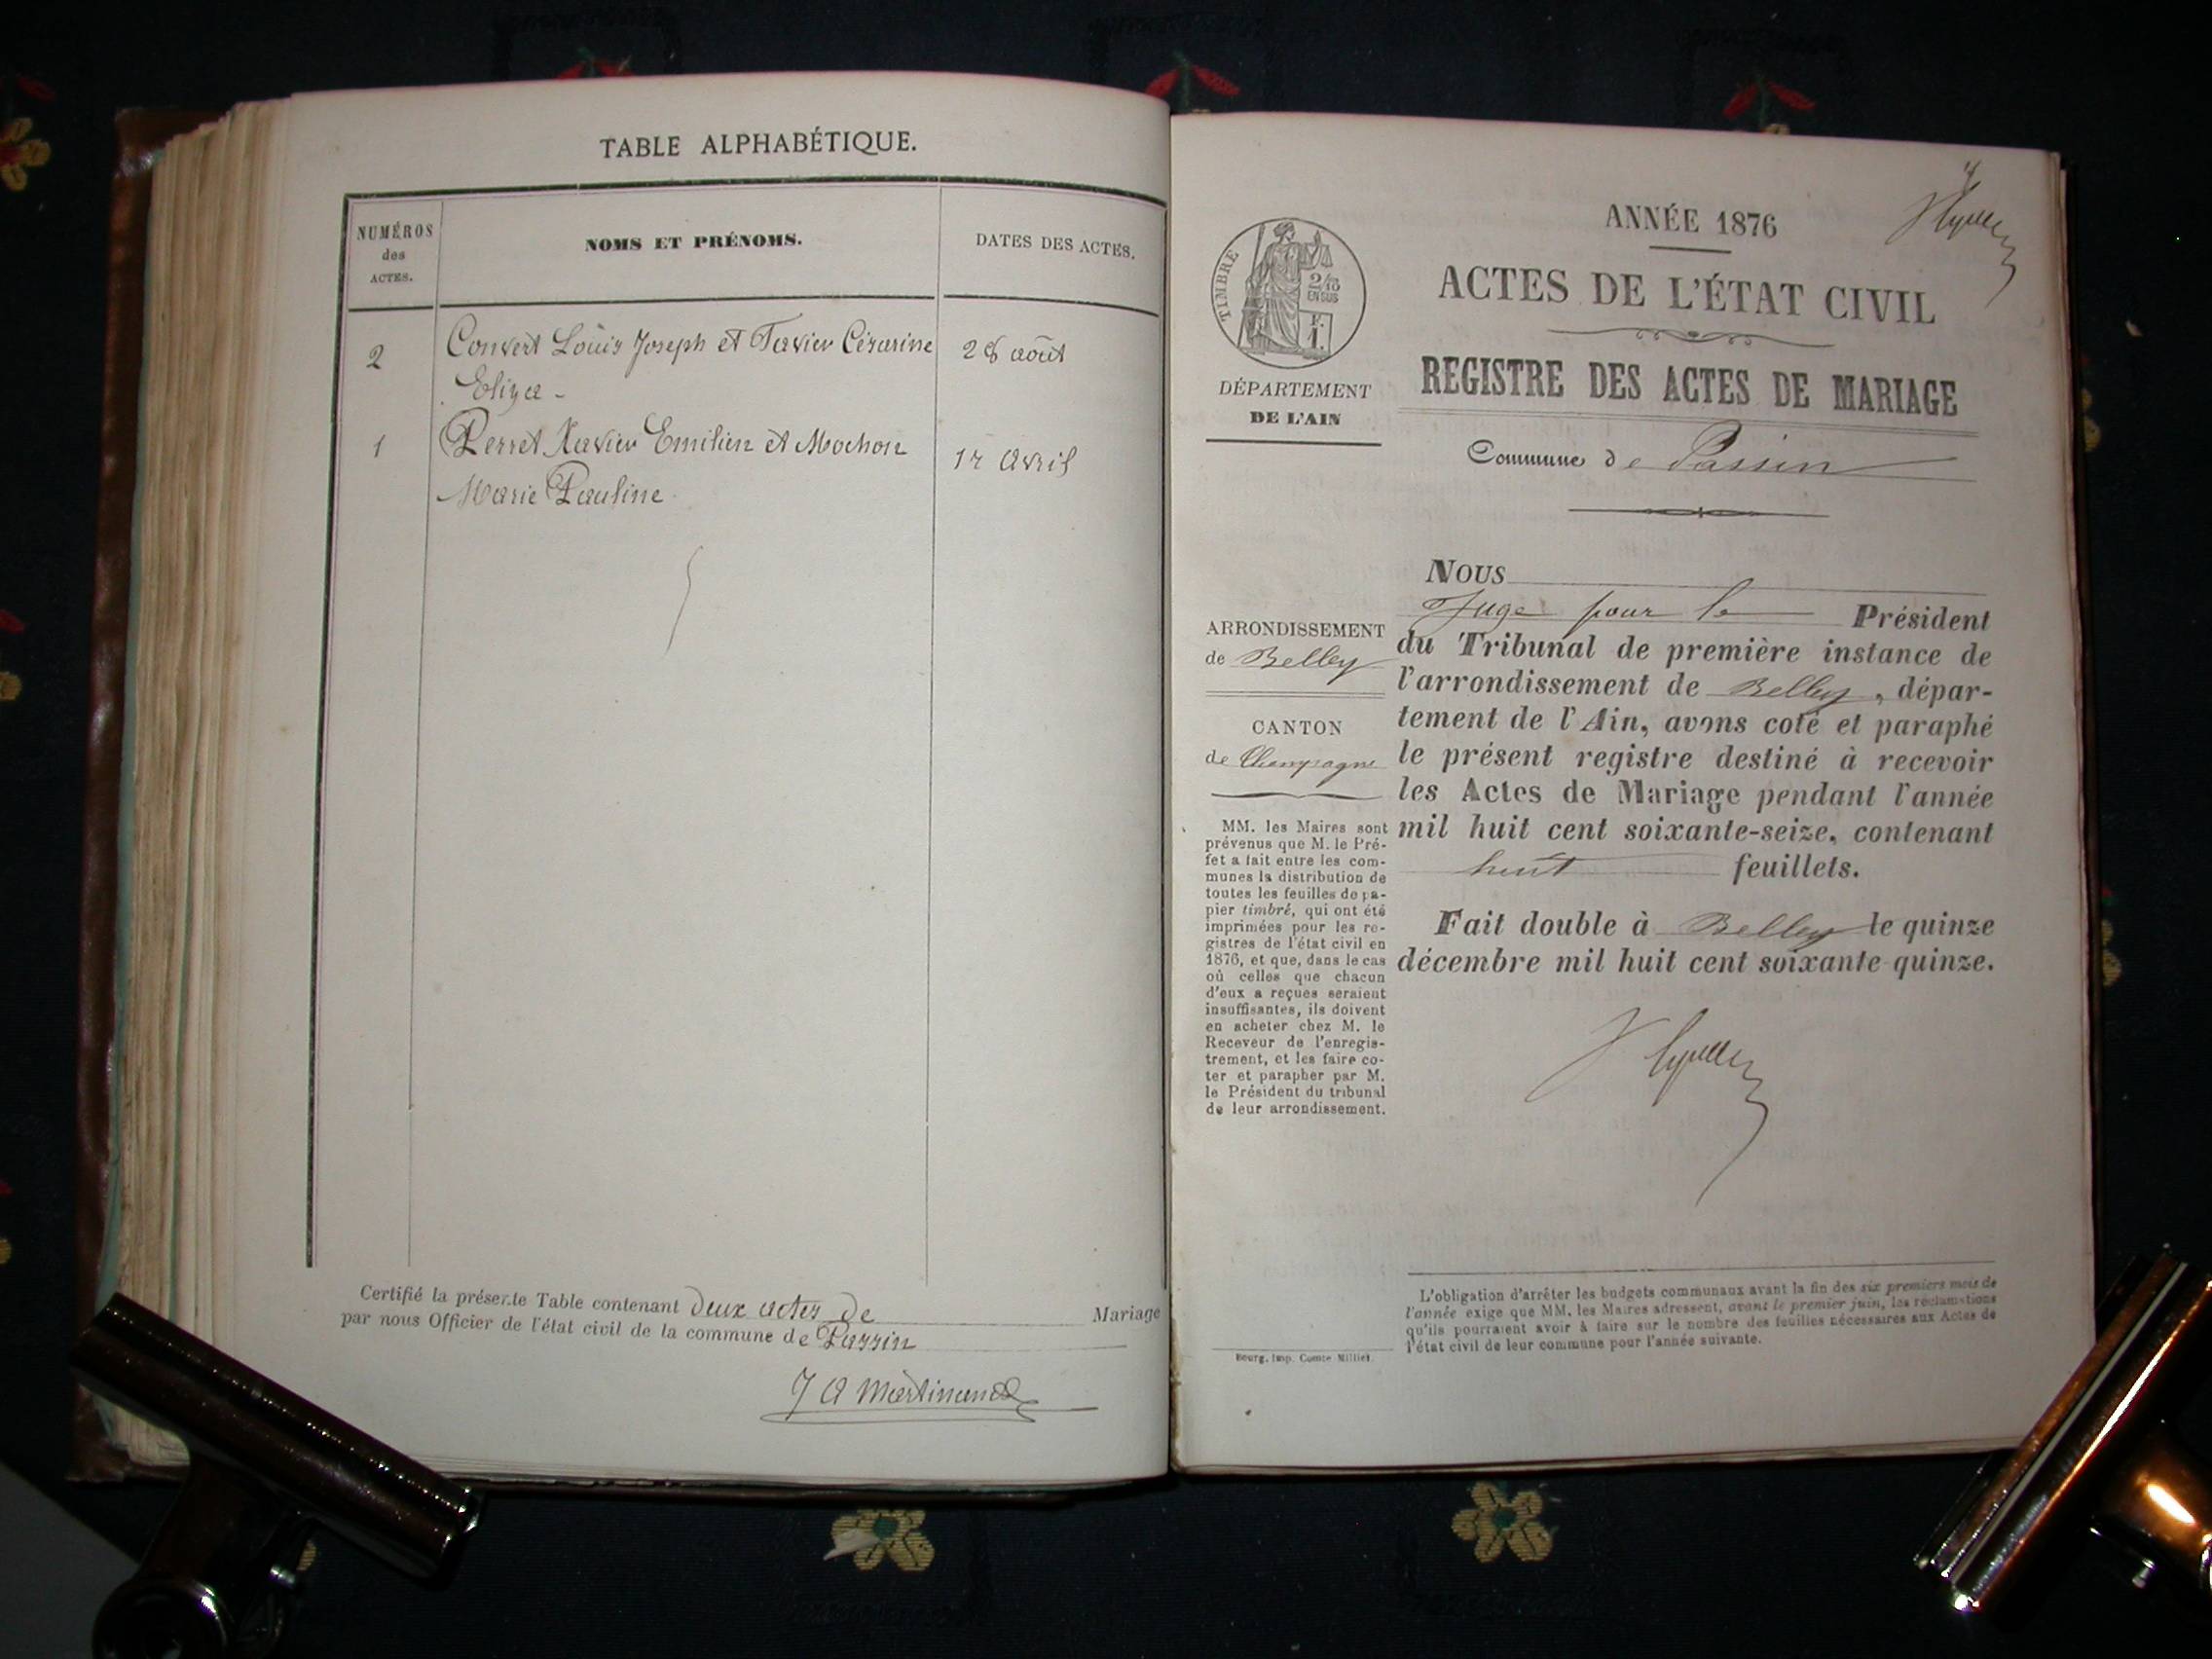 TABLE ALPHABÉTIQUE.
NUMÉROS
des
ACTES.
NOMS ET PRÉNOMS.
DATES DES ACTES.
2 Convert Louis Joseph et Tavier Cézarine 28 août
Eliza -
1 Perret Xavier Emilien et Mochon 17 Avril
Marie Pauline
Certifié la présente Table contenant deux actes de Mariage
par nous Officier de l'état civil de la commune de Passin
J A Martinand
ANNÉE 1876
ACTES DE L'ÉTAT CIVIL
REGISTRE DES ACTES DE MARIAGE
Commune de Passin
TIMBRE
2/10
EN SUS
F.
1.
DÉPARTEMENT
DE L'AIN
ARRONDISSEMENT
de Belley
CANTON
de Champagne
MM. les Maires sont
prévenus que M. le Pré-
fet a fait entre les com-
munes la distribution de
toutes les feuilles de pa-
pier timbré, qui ont été
imprimées pour les re-
gistres de l'état civil en
1876, et que, dans le cas
où celles que chacun
d'eux a reçues seraient
insuffisantes, ils doivent
en acheter chez M. le
Receveur de l'enregis-
trement, et les faire co-
ter et parapher par M.
le Président du tribunal
de leur arrondissement.
NOUS
Juge pour le Président
du Tribunal de première instance de
l'arrondissement de Belley, dépar-
tement de l'Ain, avons coté et paraphé
le présent registre destiné à recevoir
les Actes de Mariage pendant l'année
mil huit cent soixante-seize, contenant
huit feuillets.
Fait double à Belley le quinze
décembre mil huit cent soixante-quinze.
L'obligation d'arrêter les budgets communaux avant la fin des six premiers mois de
l'année exige que MM. les Maires adressent, avant le premier juin, les réclamations
qu'ils pourraient avoir à faire sur le nombre des feuilles nécessaires aux Actes de
l'état civil de leur commune pour l'année suivante.
Bourg, Imp. Comte-Milliet.